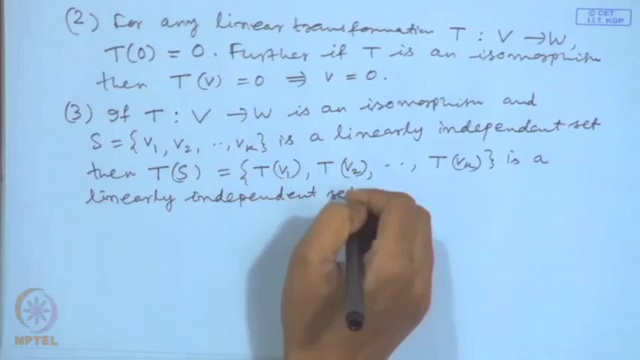 © CET
I.I.T. KGP
(2) For any linear transformation T : V → W,
T(0) = 0. Further if T is an isomorphism
then T(v) = 0 ⇒ v = 0.
(3) If T : V → W is an isomorphism and
S = {v₁, v₂, .., vₖ} is a linearly independent set
then T(S) = {T(v₁), T(v₂), .., T(vₖ)} is a
linearly independent set
NPTEL